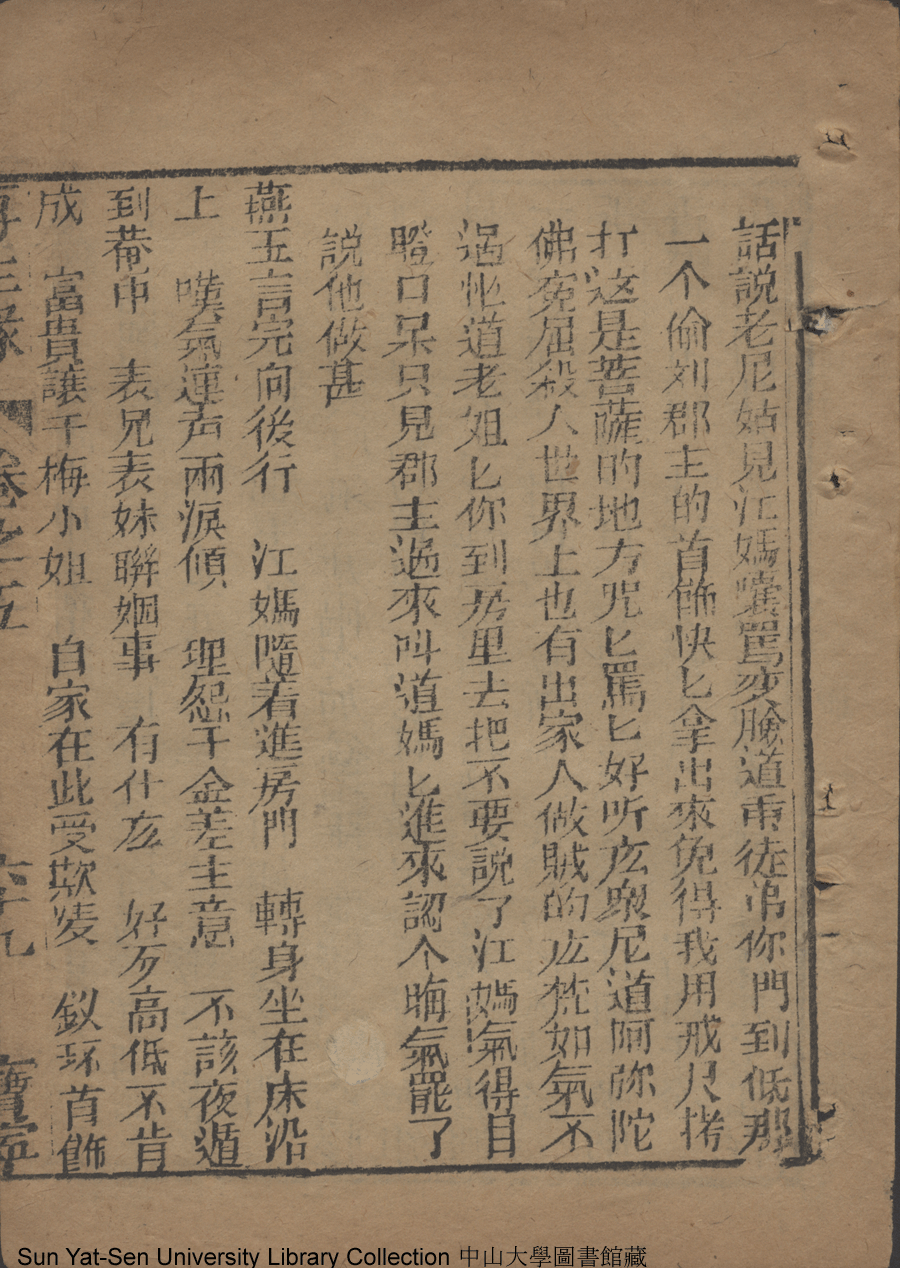 話說老尼姑見江媽嚷罵变臉道甫徒弟你門到低那
一个偷刘郡主的首飾快匕拿出來免得我用戒尺拷
打这是菩薩的地方咒匕罵匕好听庅衆尼道阿弥陀
佛寃屈殺人世界上也有出家人做賊的庅梵如氣不
過恠道老姐匕你到房里去把不要說了江媽氣得目
瞪口呆只見郡主過來叫道媽匕進來認个晦氣罷了
說他做甚
燕玉言完向後行 江媽隨着進房門 轉身坐在床沿
上 嘆氣連声兩淚傾 理怨千金差主意 不該夜遁
到菴中 表兄表妹聯姻事 有什庅 好歹高低不肯
成 富貴讓千梅小姐 自家在此受欺凌 釵环首飾
再生緣 卷之五 六十九 寶寧
Sun Yat-Sen University Library Collection 中山大學圖書館藏